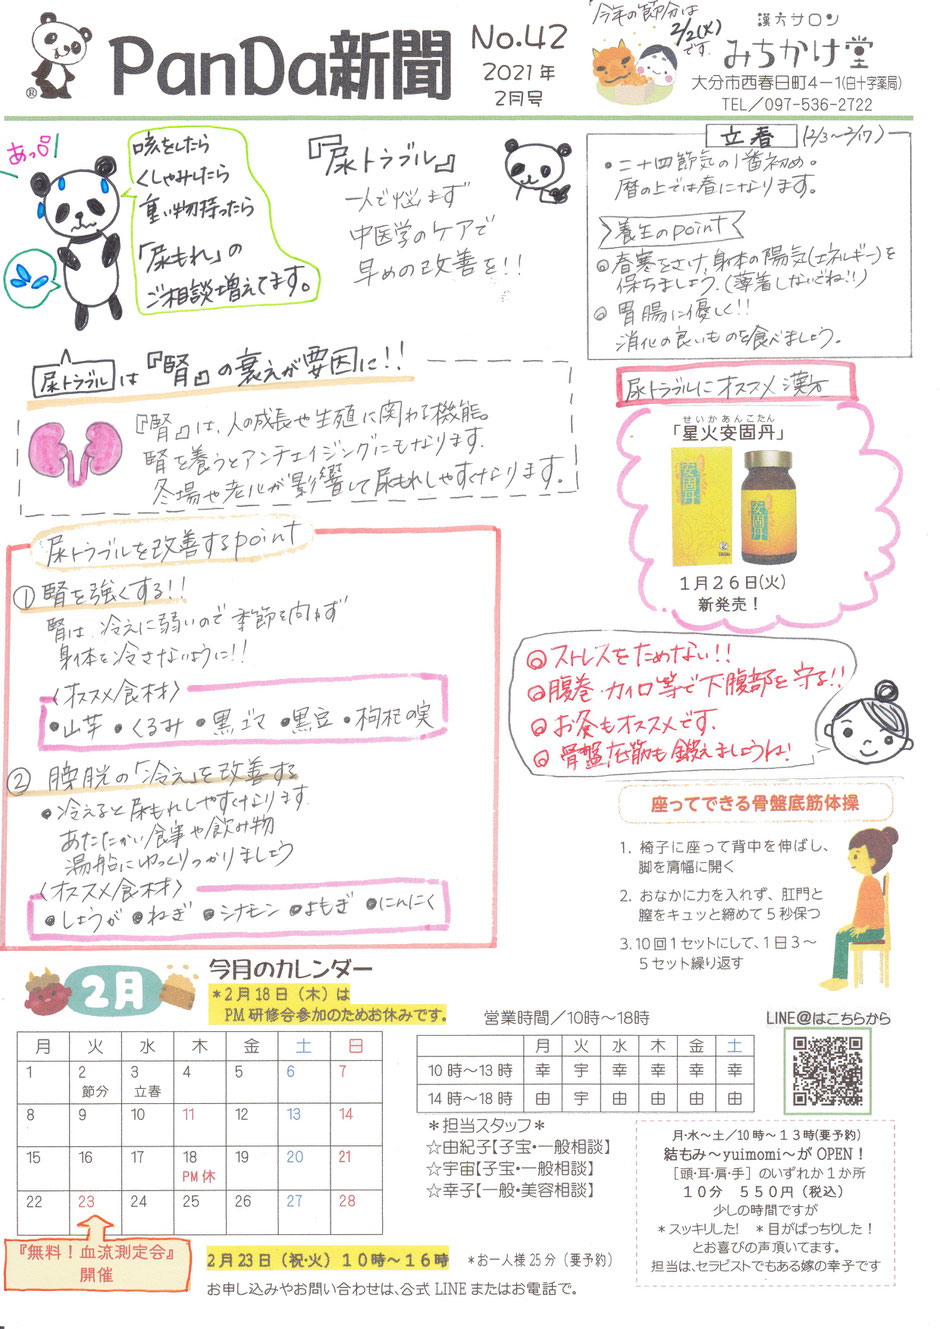 PanDa新聞
No.42
2021年
2月号
今年の節分は
2/2(火)
です。
漢方サロン
みちかけ堂
大分市西春日町4－1(白十字薬局)
TEL／097-536-2722
あっ
咳をしたら
くしゃみしたら
重い物持ったら
「尿もれ」の
ご相談増えてます。
『尿トラブル』
一人で悩まず
中医学のケアで
早めの改善を!!
立春 (2/3〜2/17)
・二十四節気の1番初め。
暦の上では春になります。
養生のpoint
◎春寒をさけ、身体の陽気(エネルギー)を
保ちましょう。(薄着しないでね!!)
◎胃腸に優しく!!
消化の良いものを食べましょう。
尿トラブルは『腎』の衰えが要因に!!
『腎』は、人の成長や生殖に関わる機能。
腎を養うとアンチエイジングにもなります。
冬場や老化が影響して尿もれしやすくなります。
尿トラブルにオススメ漢方
せいかあんこたん
「星火安固丹」
安固丹
安固丹
1月26日(火)
新発売！
尿トラブルを改善するpoint
①腎を強くする!!
腎は、冷えに弱いので季節を問わず
身体を冷さないように!!
〈オススメ食材〉
・山芋 ・くるみ ・黒ゴマ ・黒豆 ・枸杞の実
②膀胱の「冷え」を改善する
・冷えると尿もれしやすくなります。
あたたかい食事や飲み物
湯船にゆっくりつかりましょう
〈オススメ食材〉
・しょうが ・ねぎ ・シナモン ・よもぎ ・にんにく
◎ストレスをためない!!
◎腹巻・カイロ等で下腹部を守る!!
◎お灸もオススメです。
◎骨盤底筋も鍛えましょうね!
座ってできる骨盤底筋体操
1. 椅子に座って背中を伸ばし、
脚を肩幅に開く
2. おなかに力を入れず、肛門と
膣をキュッと締めて5秒保つ
3. 10回1セットにして、1日3〜
5セット繰り返す
2月
今月のカレンダー
*2月18日（木）は
PM研修会参加のためお休みです。
月 火 水 木 金 土 日
1 2 3 4 5 6 7
節分 立春
8 9 10 11 12 13 14
15 16 17 18 19 20 21
PM休
22 23 24 25 26 27 28
『無料！血流測定会』
開催
2月23日（祝・火）10時〜16時 *お一人様25分（要予約）
お申し込みやお問い合わせは、公式LINEまたはお電話で。
営業時間／10時〜18時
月 火 水 木 金 土
10時〜13時 幸 宇 幸 幸 幸 幸
14時〜18時 由 宇 由 由 由 由
*担当スタッフ*
☆由紀子【子宝・一般相談】
☆宇宙【子宝・一般相談】
☆幸子【一般・美容相談】
LINE@はこちらから
月・水〜土／10時〜13時(要予約)
結もみ〜yuimomi〜がOPEN！
［頭・耳・肩・手］のいずれか1か所
10分 550円（税込）
少しの時間ですが
*スッキリした! *目がぱっちりした！
とお喜びの声頂いてます。
担当は、セラピストでもある嫁の幸子です